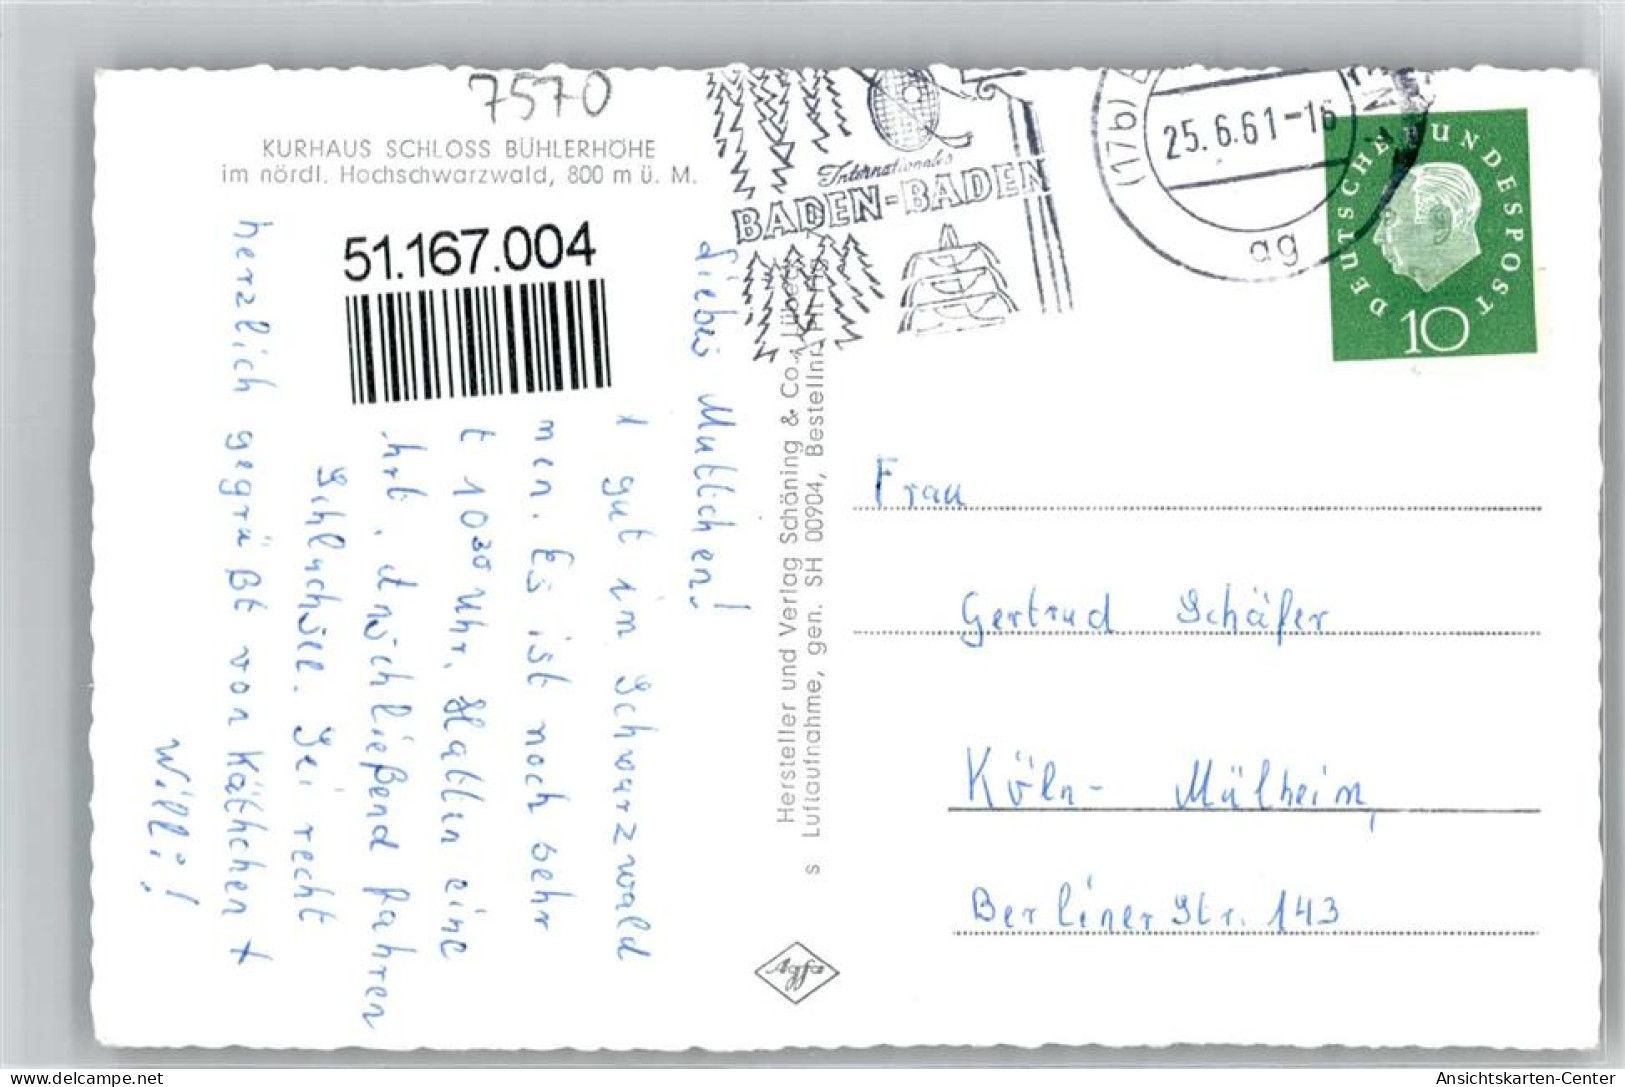 7570
KURHAUS SCHLOSS BÜHLERHÖHE
im nördl. Hochschwarzwald, 800 m ü. M.
51.167.004
Liebes Muttichen!
gut im Schwarzwald
men. Es ist noch sehr
t 10 30 Uhr. Hatten eine
hrt, anschließend fahren
Schluchsee. Sei recht
herzlich gegrüßt von Käthchen +
Willi!
Hersteller und Verlag Schöning & Co., Lübeck
s Luftaufnahme, gen. SH 00904, Bestellnr.
Agfa
Internationales
BADEN-BADEN
(17b)
25.6.61-16
ag
DEUTSCHE BUNDESPOST
10
Frau
Gertrud Schäfer
Köln-Mülheim,
Berliner Str. 143
Ansichtskarten-Center